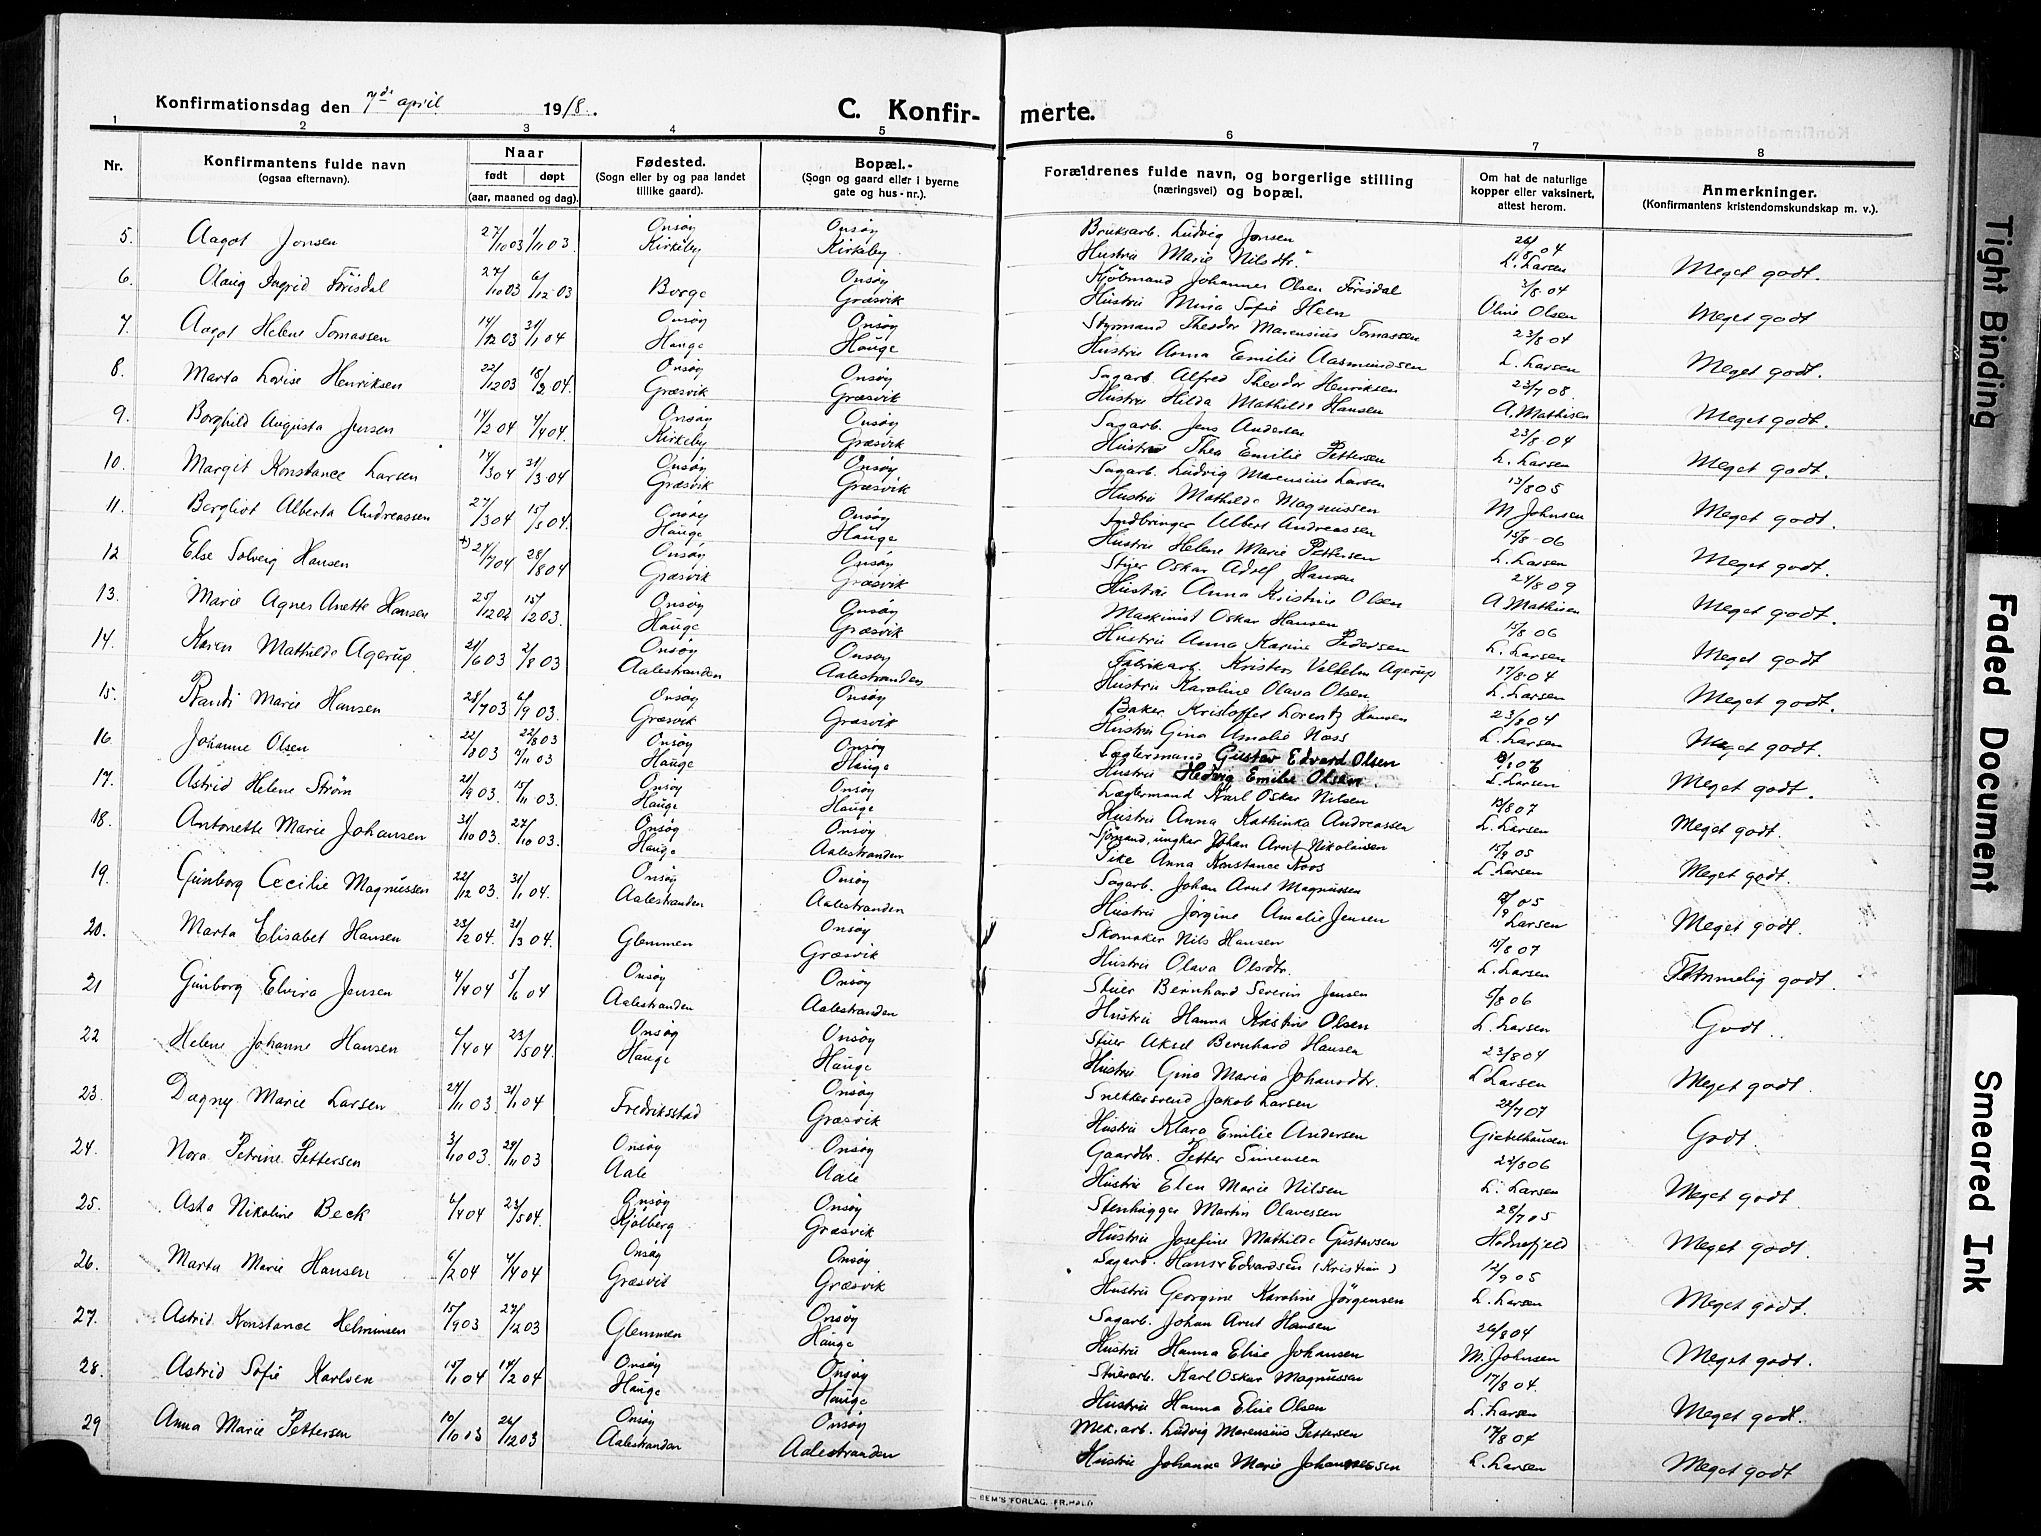 Konfirmationsdag den 7de april 1918.
C. Konfirmerte.
1 2 3 4 5 6 7 8
Nr.
Konfirmantens fulde navn
(ogsaa efternavn).
Naar
født døpt
(aar, maaned og dag).
Fødested.
(Sogn eller by og paa landet
tillike gaard).
Bopæl.
(Sogn og gaard eller i byerne
gate og hus-nr.).
Forældrenes fulde navn, og borgerlige stilling
(næringsvei) og bopæl.
Om hat de naturlige
kopper eller vaksinert,
attest herom.
Anmerkninger.
(Konfirmantens kristendomskundskap m. v.).
5. Aagot Jonsen 27/10 03 1/11 03 Onsøy Kirkeby Onsøy Kirkeby Bruksarb. Ludvig Jonsen
Hustru Marie Nilsdtr. 26/8 04 L. Larsen Meget godt.
6. Olaug Ingrid Förisdal 27/10 03 6/12 03 Borge Onsøy Græsvik Kjöbmand Johannes Olsen Förisdal
Hustru Mina Sofie Heen 3/8 04 Oline Olsen Meget godt
7. Aagot Helene Tomassen 14/12 03 31/1 04 Onsøy Hauge Onsøy Hauge Styrmand Theodor Marensius Tomassen
Hustru Anna Emilie Aasmundsen 23/8 04 L. Larsen Meget godt.
8. Marta Lovise Henriksen 22/12 03 18/2 04. Onsøy Græsvik Onsøy Græsvik Sagarb. Alfred Theodor Henriksen
Hustru Hilda Mathilde Hansen 23/7 08. A. Mathisen Meget godt.
9. Borghild Augusta Jensen 14/2 04 4/4 04. Onsøy Kirkeby Onsøy Græsvik Sagarb. Jens Andersen
Hustru Thea Emilie Pettersen 23/8 04 L. Larsen Meget godt.
10. Margit Konstance Larsen 14/3 04 31/3 04 Onsøy Græsvik Onsøy Græsvik Sagarb. Ludvig Marensius Larsen
Hustru Mathilde Magnussen 13/8 05 M. Johnsen Meget godt.
11. Bergliot Alberta Andreassen 27/3 04 15/5 04. Onsøy Hauge Onsøy Hauge Indbringer Albert Andreassen
Hustru Helene Marie Pettersen 15/8 06 L. Larsen Meget godt.
12 Else Solveig Hansen 24/7 04 28/8 04 Onsøy Græsvik Onsøy Græsvik Stuer Oskar Adolf Hansen
Hustru Anna Kristine Olsen 24/8 09 A. Mathisen Meget godt.
13. Marie Agnes Anette Hansen 25/12 02 15/2 03. Onsøy Hauge Onsøy Græsvik Maskinist Oskar Hansen
Hustru Anna Karine Pedersen 15/8 06 L. Larsen Meget godt
14. Karen Mathilde Agerup 21/6 03 2/8 03 Onsøy Aalestranden Onsøy Aalestranden Fabrikarb. Kristen Velhelm Agerup
Hustru Karoline Olava Olsen 17/8 04 L. Larsen Meget godt.
15. Randi Marie Hansen 28/7 03 6/9 03. Onsøy Græsvik Onsøy Græsvik Baker Kristoffer Lorentz Hansen
Hustru Gina Amalie Næss 23/8 04 L. Larsen Meget godt.
16. Johanne Olsen 22/8 03 Onsøy Hauge Onsøy Hauge Lægtermand Gustav Edvard Olsen
Hustru Hedvig Emilie Olsen. L. Larsen Meget godt.
17. Astrid Helene Strøm 20/9 03. 15/11 03. Onsøy Hauge Onsøy Hauge Lægtermand Karl Oskar Nilsen
Hustru Anna Kathinka Andreassen 13/8 07 L. Larsen Meget godt.
18. Antonette Marie Johansen 31/10 03. 27/10 03. Onsøy Hauge Onsøy Aalestranden Sjømand, ungkar Johan Arnt Nikolaisen
Pike Anna Konstance Roos 15/9 05 L. Larsen Meget godt.
19. Gunborg Cecilie Magnussen 22/12 03. 31/1 04. Onsøy Aalestranden Onsøy Aalestranden Sagarb. Johan Arnt Magnussen
Hustru Jørgine Amalie Jensen Larsen Meget godt.
20. Marta Elisabet Hansen 23/2 04. 31/3 04. Glemmen Onsøy Græsvik Skomaker Nils Hansen
Hustru Olava Olsdtr. 15/8 07 L. Larsen Temmelig godt.
21 Gunborg Elvira Jensen 4/4 04 5/6 04 Onsøy Aalestranden Onsøy Aalestranden Stuer Bernhard Severin Jensen
Hustru Hanna Kristine Olsen 5/8 06 L. Larsen Godt.
22 Helene Johanne Hansen 6/4 04 23/5 04. Onsøy Hauge Onsøy Hauge Stuer Aksel Bernhard Hansen
Hustru Gina Maria Johansdtr. 23/8 04 L Larsen Meget godt.
23. Dagny Marie Larsen 24/11 03 31/1 04 Fredriksstad Onsøy Græsvik Snekkersvend Jakob Larsen
Hustru Klara Emilie Andersen 22/7 07 Gietelhausen Godt.
24. Nora Petrine Pettersen 3/10 03. 29/11 03 Onsøy Aale Onsøy Aale Gaardbr. Petter Simensen
Hustru Elen Marie Nilsen 22/8 06 L. Larsen Meget godt.
25. Asta Nikoline Beck 6/4 04 23/5 04. Onsøy Kjølberg Onsøy Græsvik Stenhugger Martin Olavessen
Hustru Josefine Mathilde Gustavsen 28/7 05 Hodnefjeld Meget godt.
26. Marta Marie Hansen 6/2 04 4/4 04 Onsøy Græsvik Onsøy Græsvik Sagarb. Hans Edvardsen (Kristian)
Hustru Georgine Karoline Jörgensen 12/9 05 L. Larsen Meget godt.
27. Astrid Konstance Helminsen 15/9 03 27/12 03 Glemmen Onsøy Hauge Sagarb. Johan Arnt Hansen
Hustru Hanna Elise Johansen 26/8 04 M. Johnsen Meget godt.
28. Astrid Sofie Karlsen 15/1 04 14/2 04 Onsøy Hauge Onsøy Hauge Stuerarb. Karl Oskar Magnussen
Hustru Hanna Elise Olsen 17/8 04. L. Larsen Meget godt.
29 Anna Marie Pettersen 10/10 03 26/12 03 Onsøy Aalestranden Onsøy Aalestranden Mek. arb. Ludvig Marensius Pettersen
Hustru Johanne Marie Johannessen 17/8 04 L. Larsen Meget godt
SEM'S FORLAG. FR. HALD
Tight Binding
Faded Document
Smeared Ink